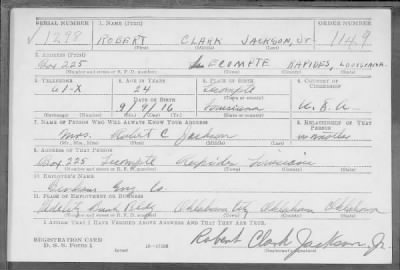 SERIAL NUMBER 1. NAME (Print) ORDER NUMBER
1298 ROBERT CLARK JACKSON, JR 1149
(First) (Middle) (Last)
2. ADDRESS (Print)
Box 225 LECOMPTE RAPIDES, LOUISIANA.
(Number and street or R. F. D. number) (Town) (County) (State)
3. TELEPHONE 4. AGE IN YEARS 5. PLACE OF BIRTH 6. COUNTRY OF CITIZENSHIP
61-X 24 Lecompte
(Town or county)
DATE OF BIRTH
9/9/16 Louisiana U. S. A.
(Exchange) (Number) (Mo.) (Day) (Yr.) (State or country)
7. NAME OF PERSON WHO WILL ALWAYS KNOW YOUR ADDRESS 8. RELATIONSHIP OF THAT PERSON
Mrs. Robert C. Jackson mother
(Mr., Mrs., Miss) (First) (Middle) (Last)
9. ADDRESS OF THAT PERSON
Box 225 Lecompte Rapides Louisiana
(Number and street or R. F. D. number) (Town) (County) (State)
10. EMPLOYER'S NAME
Eng Co
11. PLACE OF EMPLOYMENT OR BUSINESS
Bldg Oklahoma City Oklahoma Oklahoma
(Number and street or R. F. D. number) (Town) (County) (State)
I AFFIRM THAT I HAVE VERIFIED ABOVE ANSWERS AND THAT THEY ARE TRUE.
REGISTRATION CARD
D. S. S. FORM 1
(over)
Robert Clark Jackson, Jr.
(Registrant's signature)